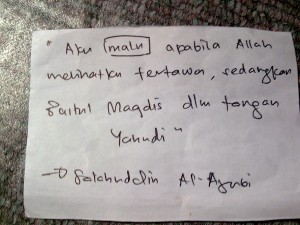 " Aku malu apabila Allah
melihatku tertawa, sedangkan
Baitul Maqdis dlm tangan
Yahudi "
→ Salahuddin Al-Ayubi